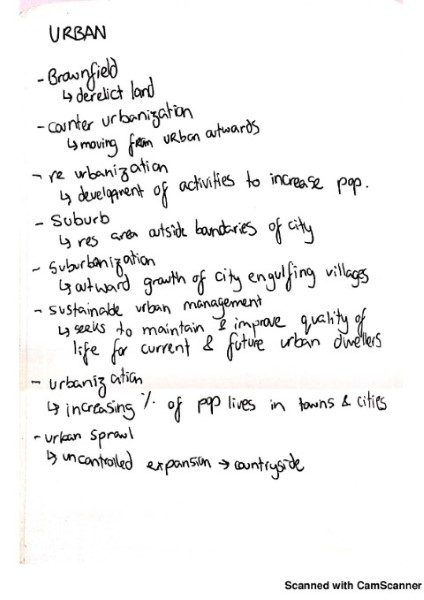 URBAN
- Brownfield
↳ derelict land
- counter urbanization
↳ moving from urban outwards
- re urbanization
↳ development of activities to increase pop.
- Suburb
↳ res area outside boundaries of city
- Suburbanization
↳ outward growth of city engulfing villages
- sustainable urban management
↳ seeks to maintain & improve quality of
life for current & future urban dwellers
- urbanization
↳ increasing % of pop lives in towns & cities
- urban sprawl
↳ uncontrolled expansion → countryside
Scanned with CamScanner